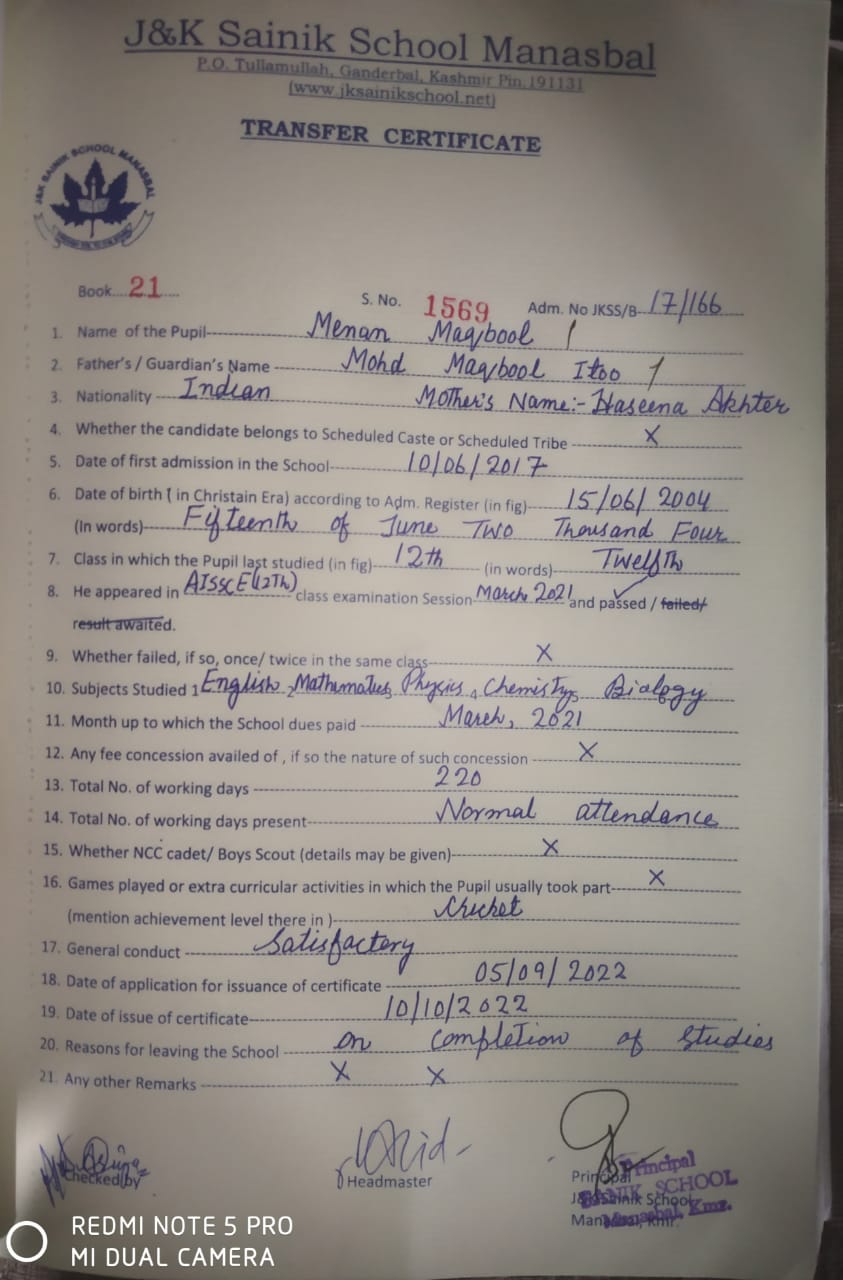 J&K Sainik School Manasbal
P.O. Tullamullah, Ganderbal, Kashmir Pin.191131
(www.jksainikschool.net)
TRANSFER CERTIFICATE
J&K SAINIK SCHOOL MANASBAL
Book....21.....
S. No. 1569 Adm. No JKSS/B-17/166
1. Name of the Pupil Menan Maqbool
2. Father's / Guardian's Name Mohd Maqbool Itoo
3. Nationality Indian Mother's Name:- Haseena Akhter
4. Whether the candidate belongs to Scheduled Caste or Scheduled Tribe X
5. Date of first admission in the School 10/06/2017
6. Date of birth ( in Christain Era) according to Adm. Register (in fig) 15/06/2004
(In words) Fifteenth of June Two Thousand Four
7. Class in which the Pupil last studied (in fig) 12th (in words) Twelfth
8. He appeared in AISSCE(12Th) class examination Session March 2021 and passed / failed/
result awaited.
9. Whether failed, if so, once/ twice in the same class X
10. Subjects Studied 1 English 2 Mathematics 3 Physics 4 Chemistry 5 Biology
11. Month up to which the School dues paid March, 2021
12. Any fee concession availed of , if so the nature of such concession X
13. Total No. of working days 220
14. Total No. of working days present Normal attendance
15. Whether NCC cadet/ Boys Scout (details may be given) X
16. Games played or extra curricular activities in which the Pupil usually took part X
(mention achievement level there in ) Cricket
17. General conduct Satisfactory
18. Date of application for issuance of certificate 05/09/2022
19. Date of issue of certificate 10/10/2022
20. Reasons for leaving the School on completion of Studies
21. Any other Remarks X X
Checked by
Headmaster
Principal
J&K Sainik School
Manasbal, Kmr.
Principal
SAINIK SCHOOL
Manasbal, Kmr.
REDMI NOTE 5 PRO
MI DUAL CAMERA